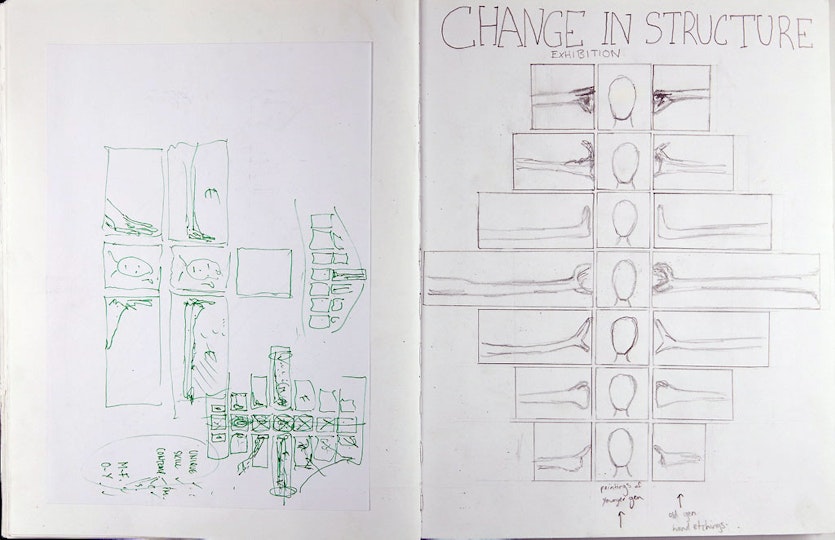 CHANGE IN STRUCTURE
EXHIBITION
paintings of
younger gen
old gen
hand etchings
SKILL
M-F
O-Y